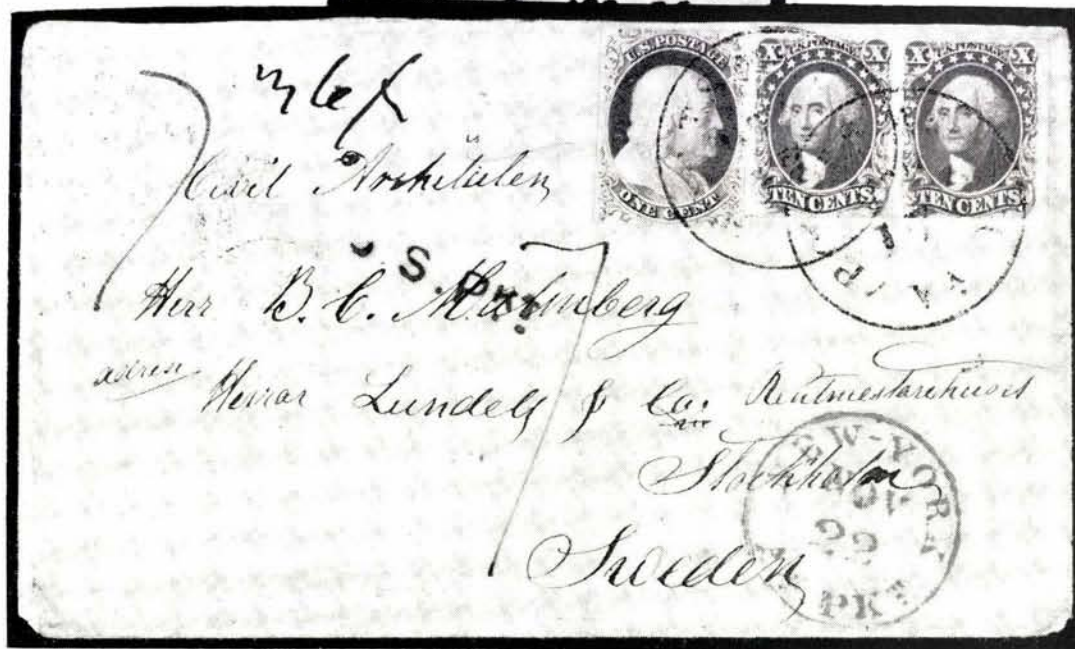 U.S. POSTAGE
ONE CENT
X U.S. POSTAGE X
TEN CENTS
X U.S. POSTAGE X
TEN CENTS
Civil Architecten
S. PKT
Herr B. C. Malmberg
adress
Herrar Lundell & Co.
Stockholm
Sweden
NEW-YORK
NOV
22
PKT